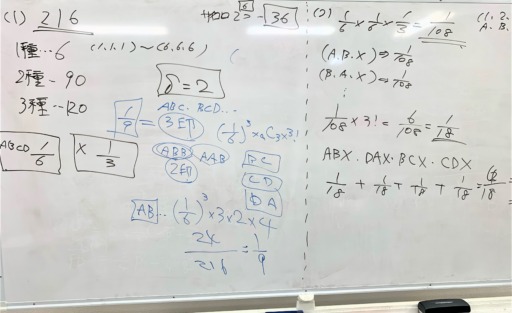 (1) 216
1種…6 (1.1.1)～(6.6.6)
2種…90
3種…120
ABCD 1/6
X 1/3
6
36
δ=2
ABC. BCD…
1/9 = 3印 (1/6)³×₄C₃×3!
ABB AAB
2印
BC
CD
DA
AB… (1/6)³×3×2×4
24/216 = 1/9
(2) 1/6 × 1/6 × 1/3 = 1/108
(1.2.
A.B.
(A.B.X) ⇒ 1/108
(B.A.X) ⇒ 1/108
⋮
1/108 × 3! = 6/108 = 1/18
ABX. DAX. BCX. CDX
1/18 + 1/18 + 1/18 + 1/18 = 4/18 =